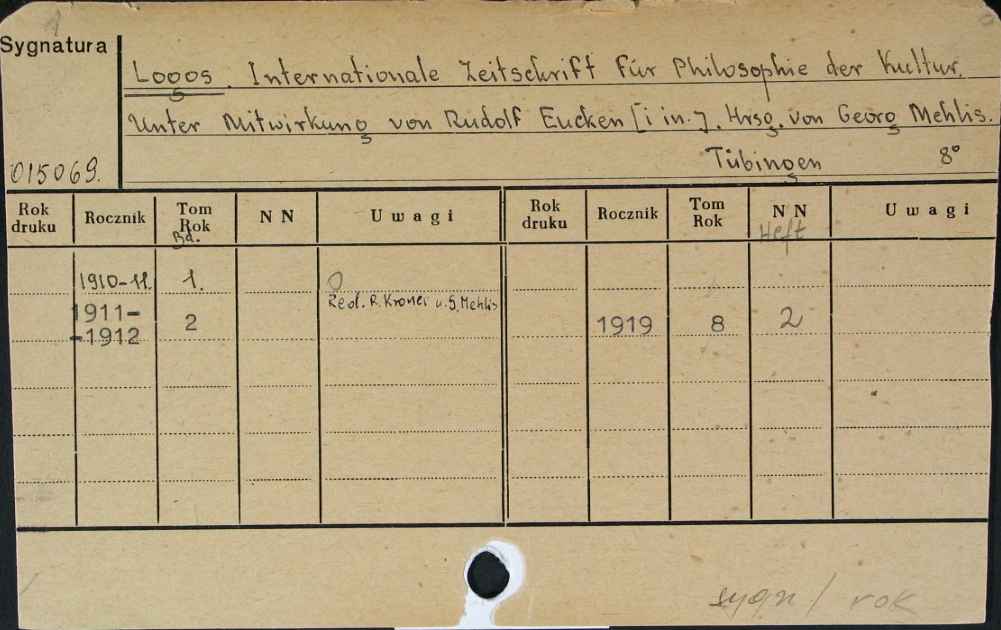 Sygnatura
Logos. Internationale Zeitschrift für Philosophie der Kultur.
Unter Mitwirkung von Rudolf Eucken [i in.]. Hrsg. von Georg Mehlis.
015069.
Tübingen 8°
Rok druku Rocznik Tom Rok NN Uwagi Rok druku Rocznik Tom Rok NN Uwagi
Bd. Heft
1910-11. 1.
Red. R. Kroner u. G. Mehlis
1911-
-1912 2 1919 8 2
sygn / rok